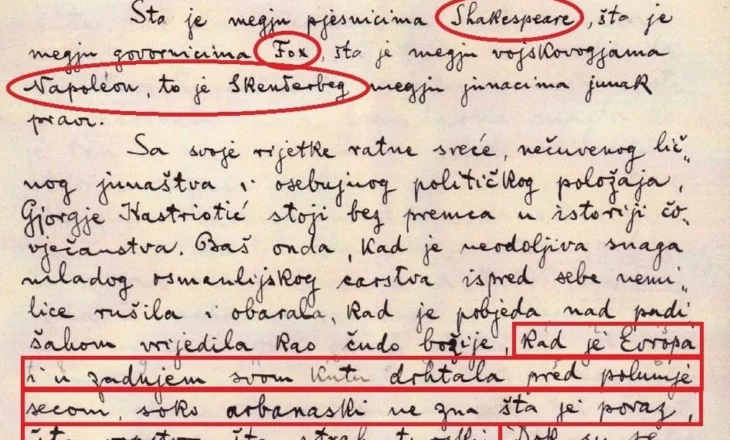 Šta je megju pjesnicima Shakespeare, šta je
megju govornicima Fox, šta je megju vojskovogjama
Napoléon, to je Skenderbeg megju junacima junak
pravi.
Sa svoje rijetke ratne sreće, nečuvenog lič„
nog junaštva i osebujnog političkog položaja,
Gjorgje Kastriotić stoji bez premca u istoriji čo„
vječanstva. Baš onda, kad je neodoljiva snaga
mladog osmanlijskog carstva ispred sebe nemi„
lice rušila i obarala, kad je pobjeda nad padi
šahom vrijedila kao čudo božije, kad je Evropa
i u zadnjem svom kutu drhtala pred polumje
secom, soko arbanaski ne zna šta je poraz,
šta strah